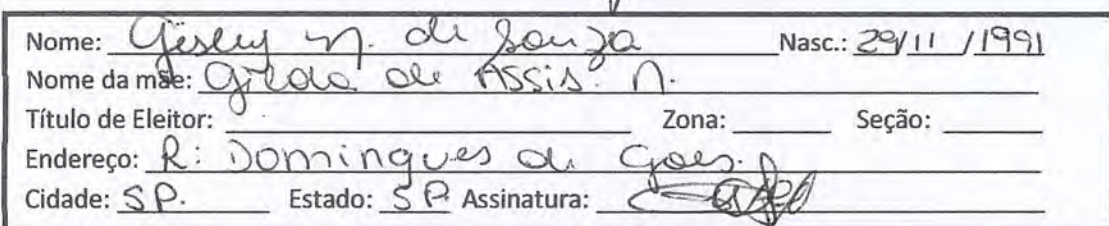 Nome: Gesley n. de Souza Nasc.: 29/11/1991
Nome da mãe: Gilda de Assis. N.
Título de Eleitor: Zona: Seção:
Endereço: R: Domingues de Goes.
Cidade: SP. Estado: SP Assinatura: